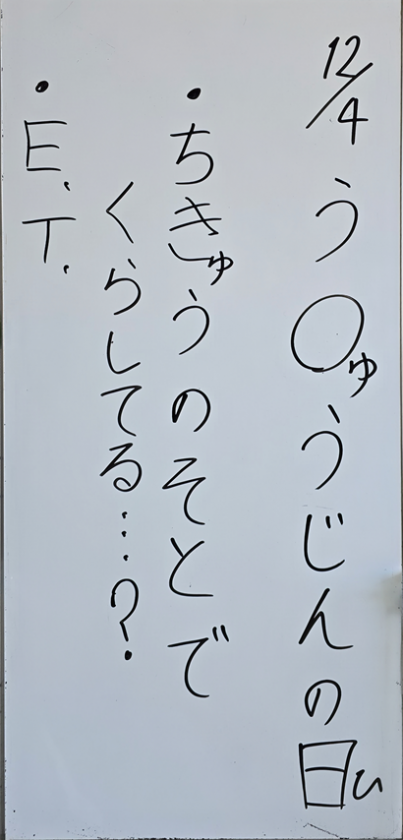 12/4 う○ゅうじんの日ひ
・ちきゅうのそとで
くらしてる…?
・E.T.